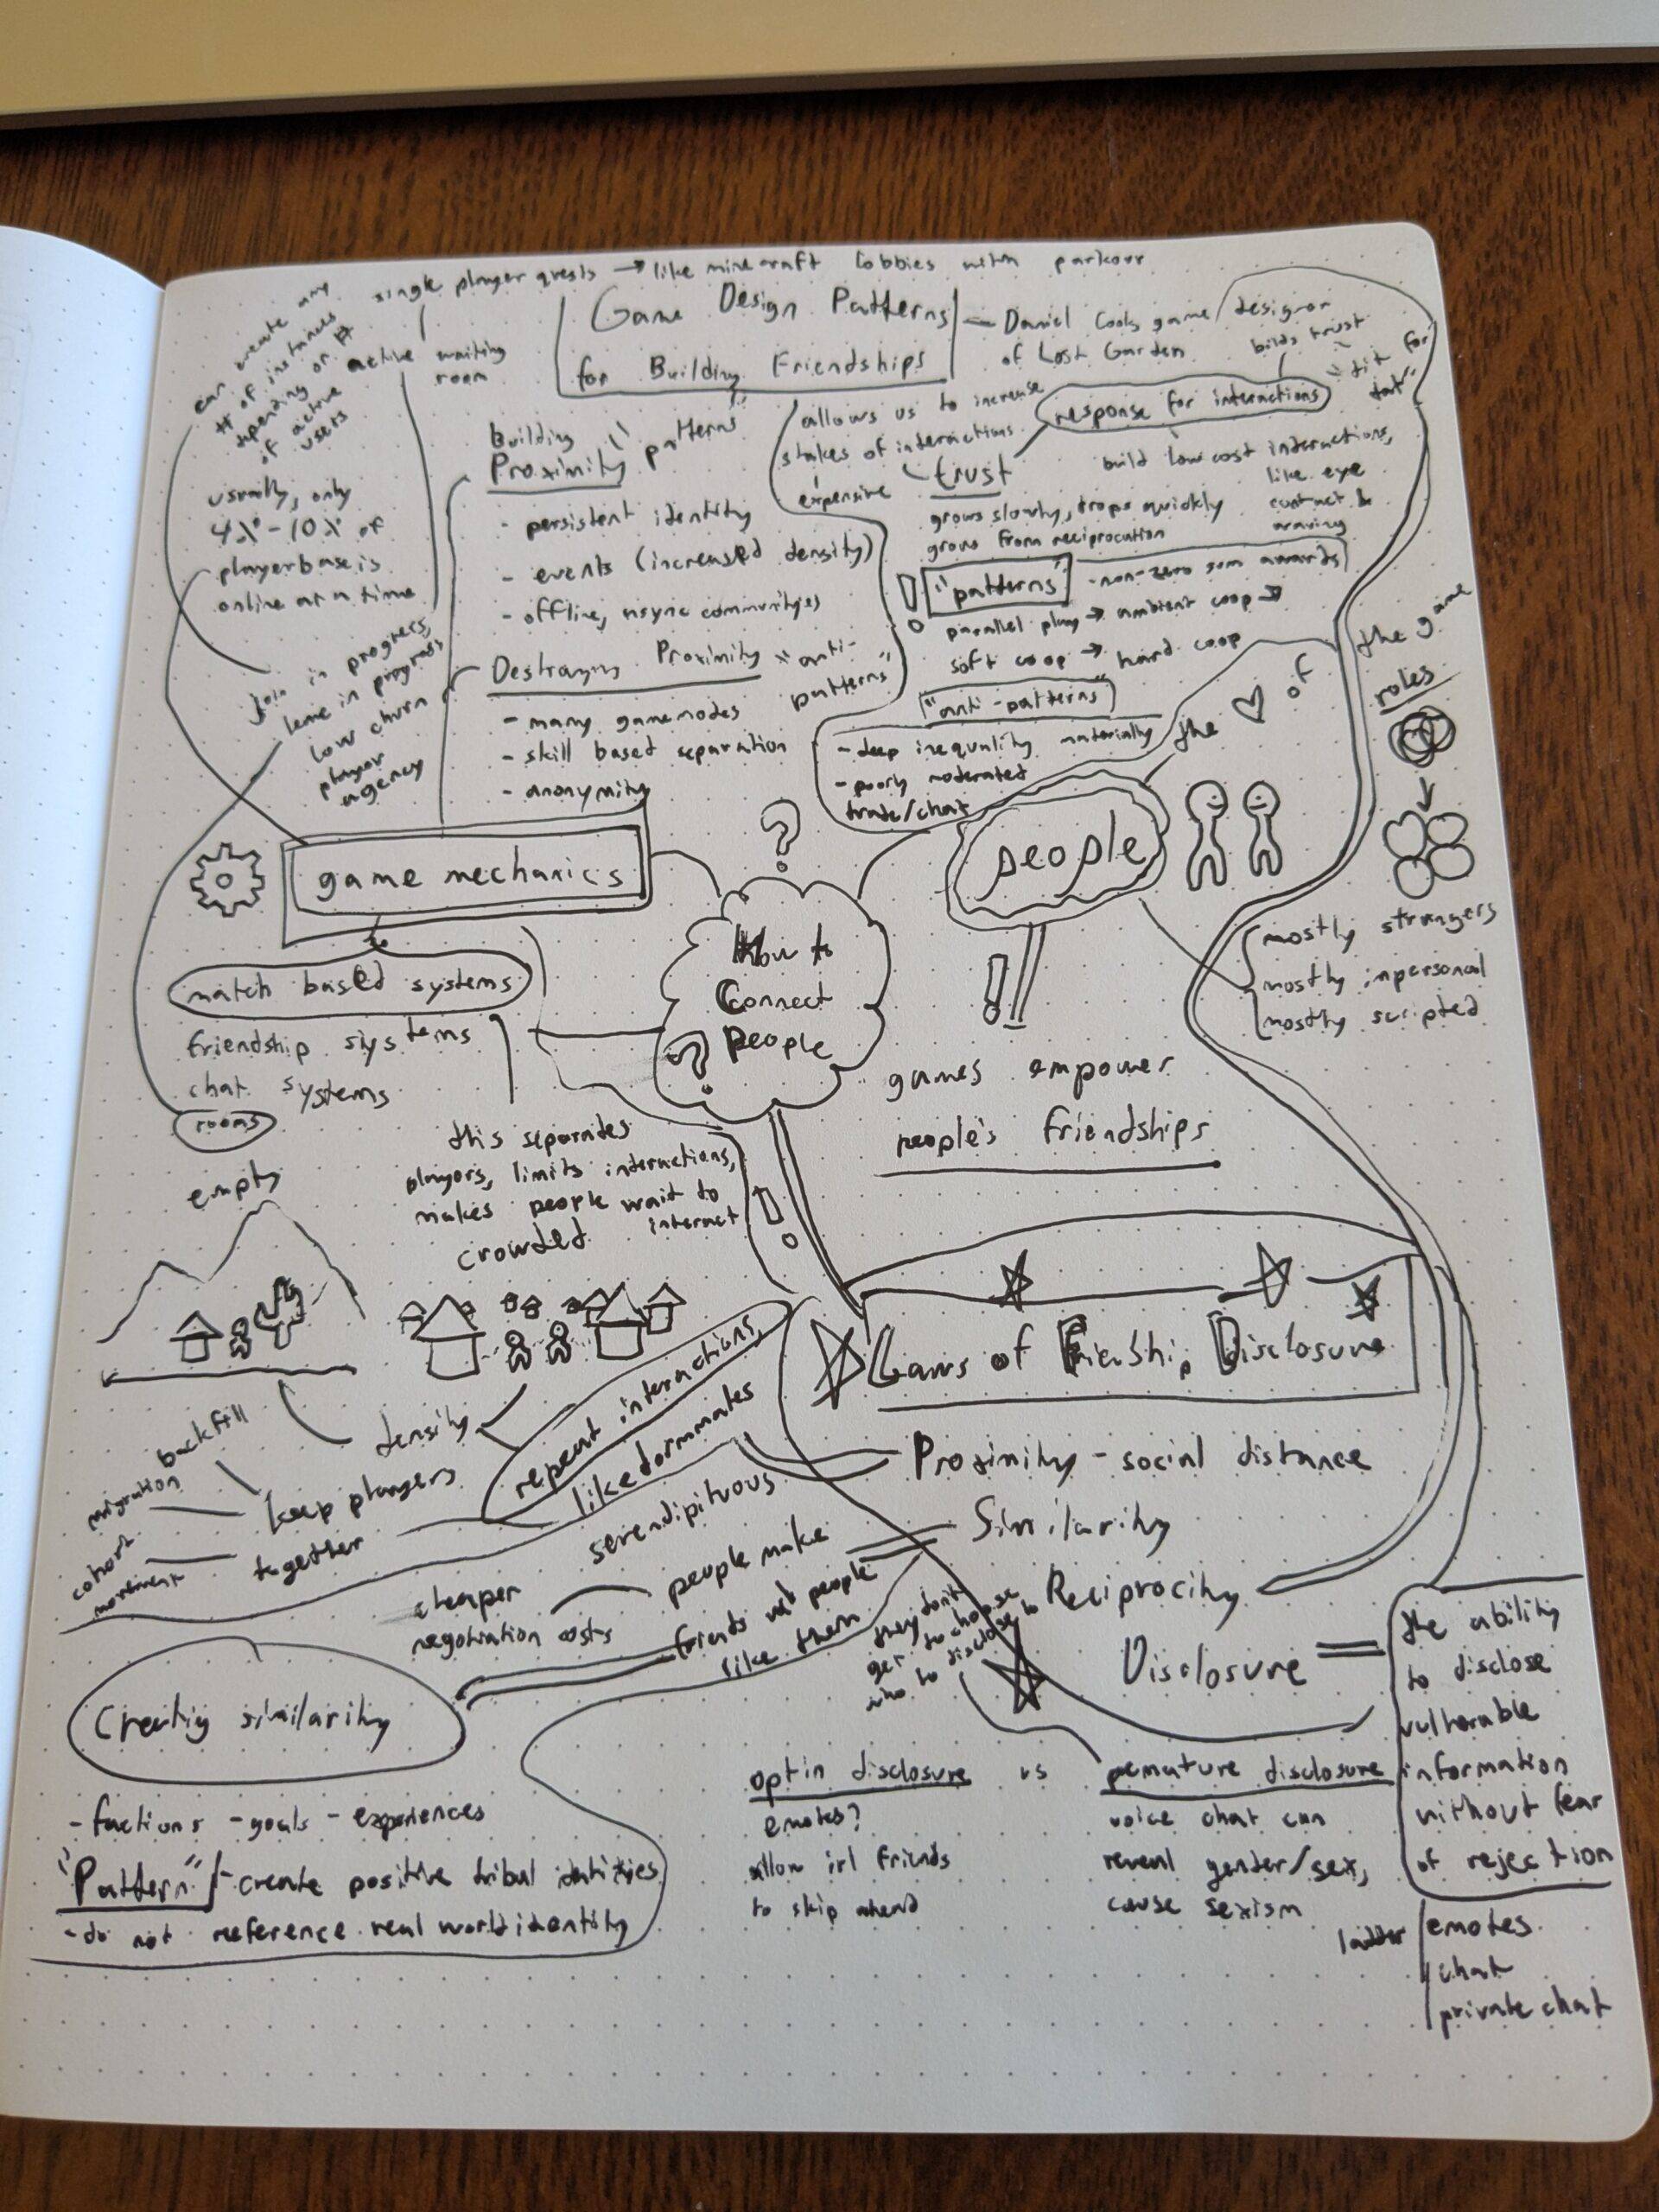 single player quests → like minecraft lobbies with parkour
active waiting
room
can create any
# of instances
depending on #
of active
users
Game Design Patterns
for Building Friendships
Daniel Cook game designer
of Lost Garden
usually, only
4%-10% of
playerbase is
online at a time
join in progress,
leave in progress
low churn
player
agency
Building
Proximity "patterns"
- persistent identity
- events (increased density)
- offline, async communities
Destroying Proximity "anti-
patterns"
- many gamemodes
- skill based separation
- anonymity
allows us to increase
stakes of interactions
expensive
trust
grows slowly, drops quickly
grows from reciprocation
response for interactions
builds trust
"tit for
tat"
build low cost interactions,
like eye
contact &
waving
! "patterns" - non-zero sum awards
parallel play → ambient coop →
soft coop → hard coop
"anti-patterns"
- deep inequality materially
- poorly moderated
trade/chat
the ♡ of
the game
roles
people
mostly strangers
mostly inpersonal
mostly scripted
game mechanics
match based systems
friendship systems
chat systems
rooms
?
How to
Connect
People
?
!
games empower
people's friendships
this separates
players, limits interactions,
makes people wait to
interact
!
empty
crowded
density
repeat interactions,
like dormmates
serendipituous
backfill
migration
cohort
movement
keep players
together
Laws of Frienship Disclosure
Proximity - social distance
Similarity
Reciprocity
Disclosure
the ability
to disclose
vulnerable
information
without fear
of rejection
ladder
emotes
chat
private chat
cheaper
negotiation costs
people make
friends w/ people
like them
they don't
get to choose
who to disclose to
Creatig similarity
- factions - goals - experiences
"Pattern" - create positive tribal identities
- do not reference real world identity
optin disclosure vs pemature disclosure
emotes?
allow irl friends
to skip ahead
voice chat can
reveal gender/sex,
cause sexism